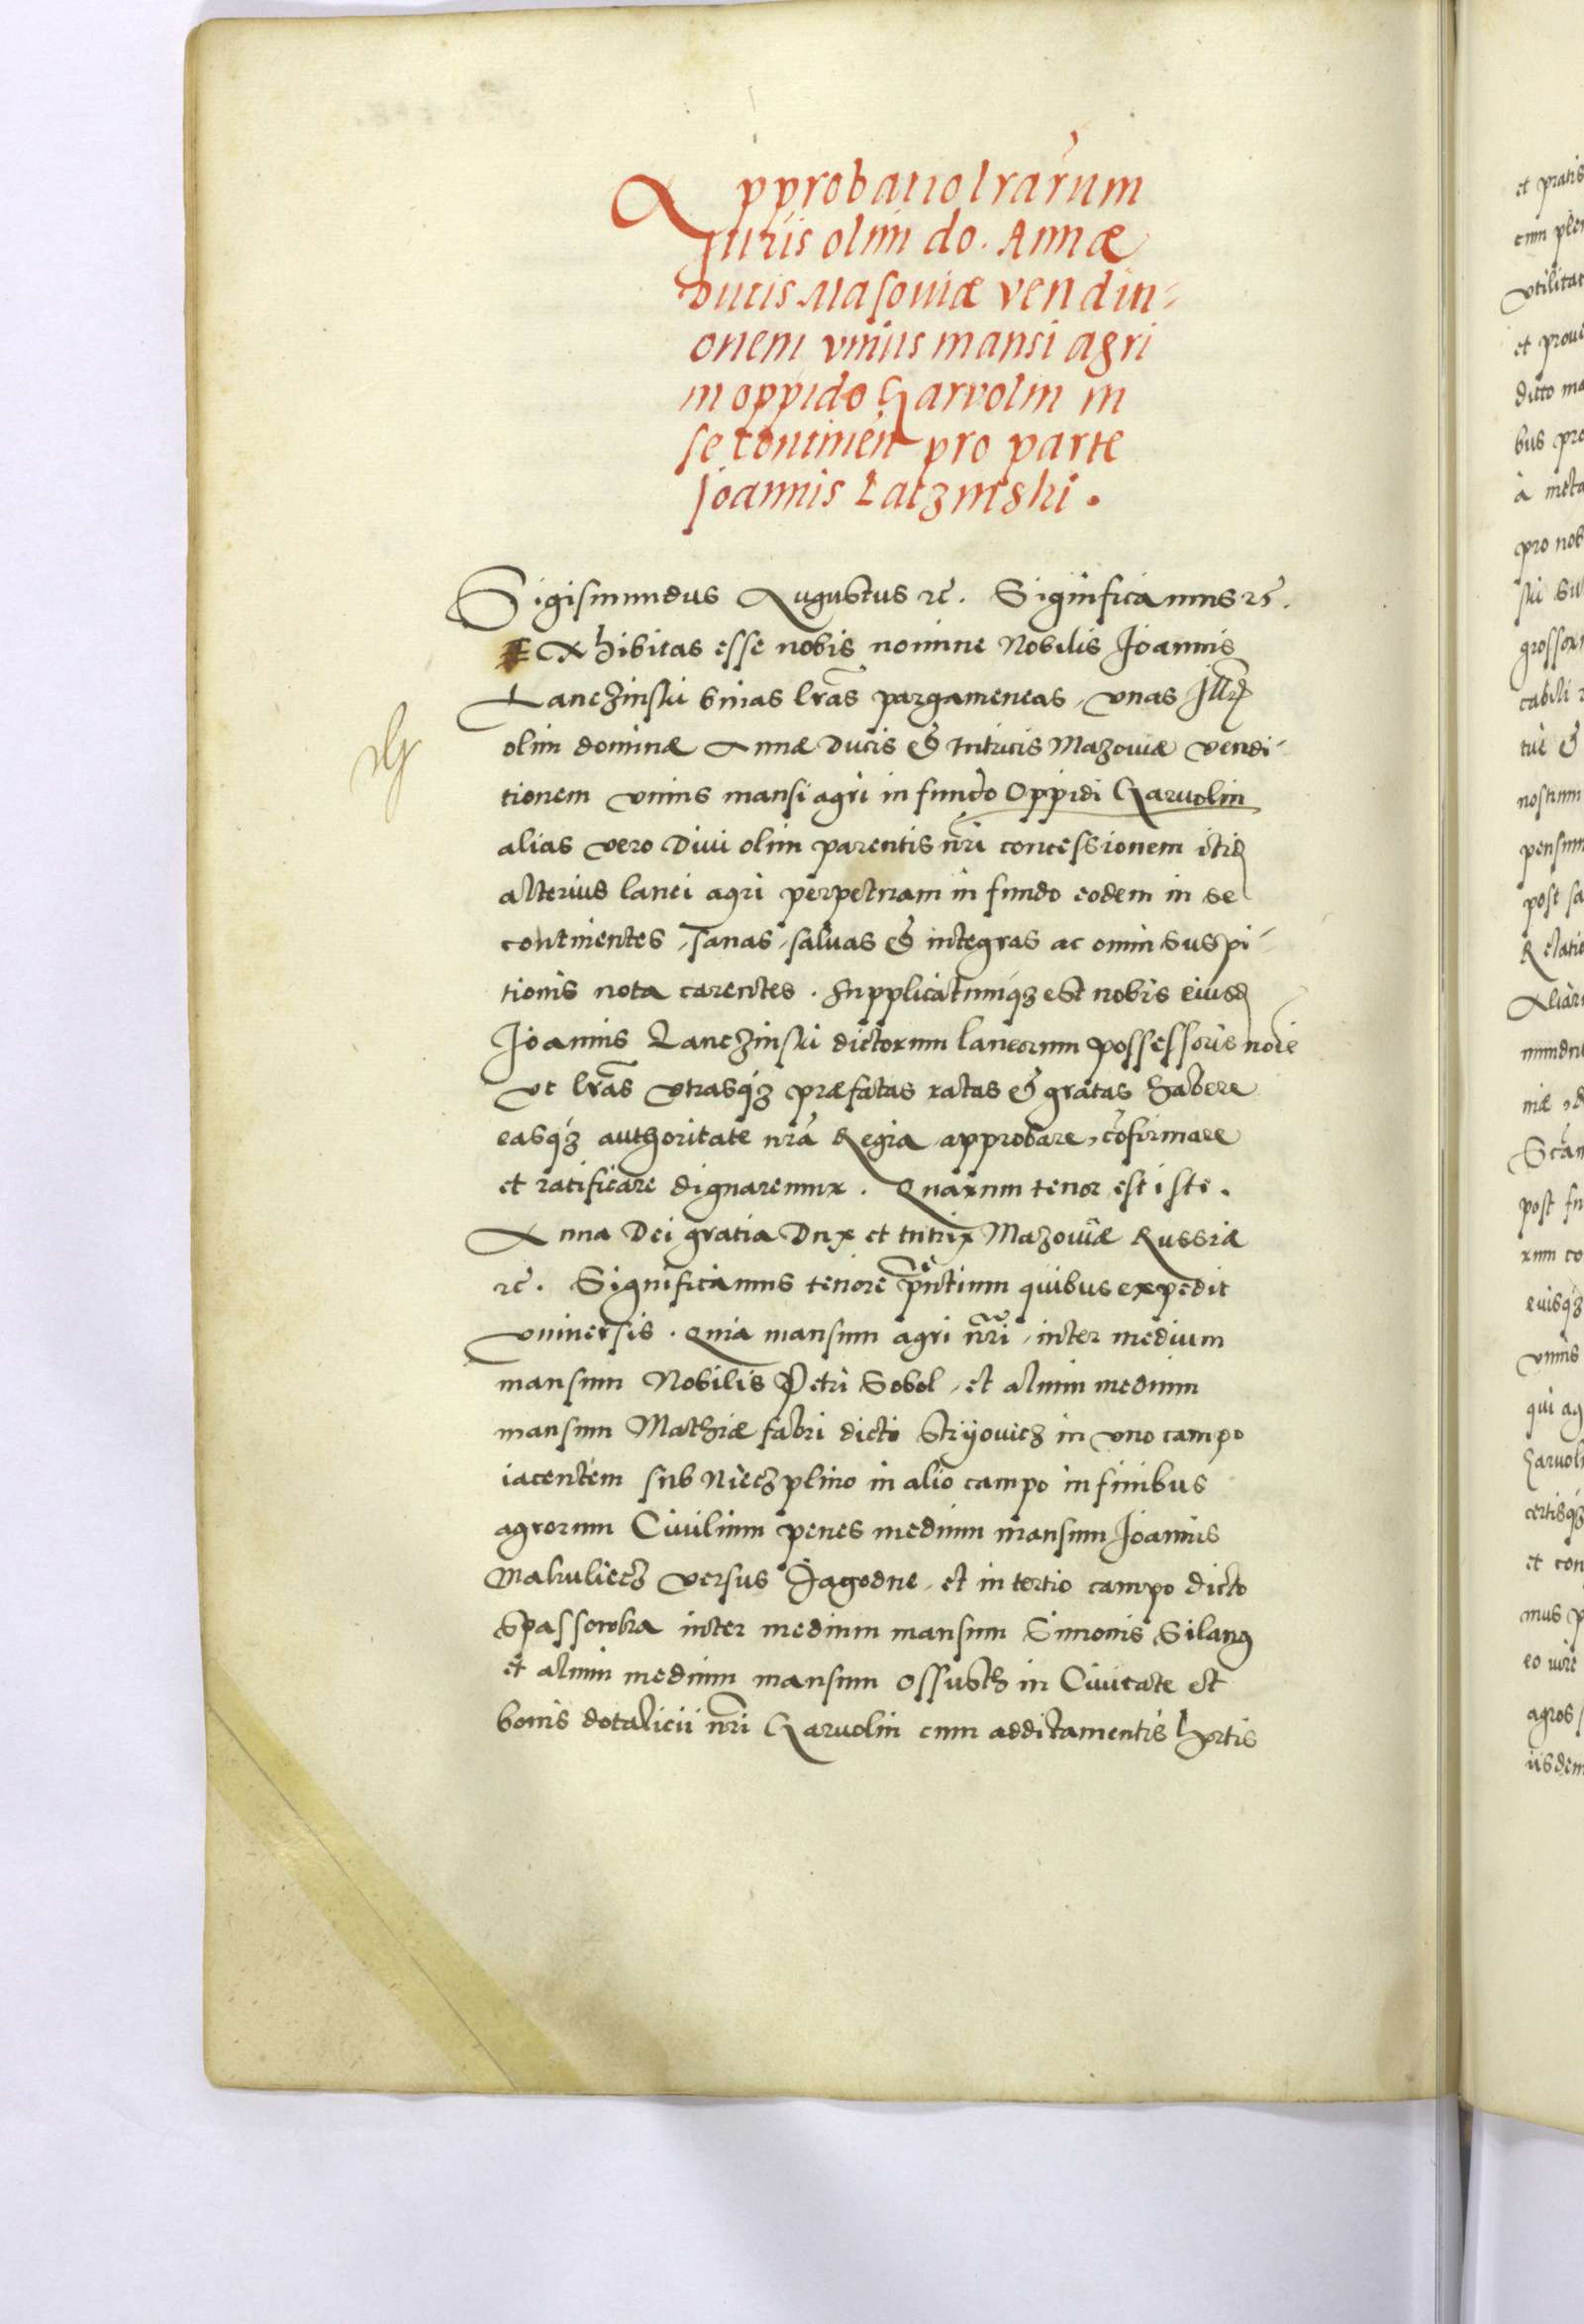 Approbatio lrarum
Juris olim do. Annæ
Ducis Masouiæ venditi-
onem vnius mansi agri
in oppido Garvolin in
se continen pro parte
Joannis Laczinski.
Sigismundus Augustus rc̄. Significamus rc̄.
Exhibitas esse nobis nomine Nobilis Joannis
Lanczinskii binas lrās pargameneas, vnas Illr̄
olim dominæ Annæ Ducis & tutricis Mazouiæ vendi-
tionem vnius mansi agri in fundo Oppidi Garuolin
alias vero Diui olim parentis nr̄i concessionem itid
alterius lanei agri perpetuam in fundo eodem in se
continentes, sanas, saluas & integras ac omni suspi-
tionis nota carentes. Supplicatumq3 est nobis eiusd
Joannis Lanczinskii dictorum laneorum possessoris noīe
vt lrās vtrasq3 præfatas ratas & gratas habere
easq3 authoritate nrā Regia approbare, cōfirmare
et ratificare dignaremur. Quarum tenor est iste.
Anna Dei gratia Dux et tutrix Mazouiæ Russiæ
rc̄. Significamus tenore pn̄tium quibus expedit
vniuersis. Quia mansum agri nr̄i, inter medium
mansum Nobilis Petri Sobol, et alium medium
mansum Mathiæ fabri dicti Stryouicz in vno campo
iacentem sub Nieczplino in alio campo in finibus
agrorum Ciuilium penes medium mansum Joannis
Makuliecz versus Jagodne, et in tertio campo dicto
Spassowka inter medium mansum Simonis Silang
et alium medium mansum Ossusth in Ciuitate et
bonis dotalicii nr̄i Garuolin cum additamentis hortis